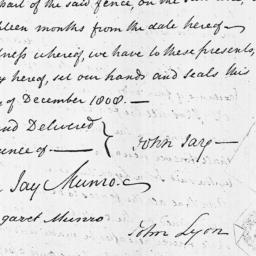 part of the said fence, on the
hteen months from the date hereof —
tness whereof, we have to these presents,
y hereof, set our hands and seals this
of December 1808. —
and Delivered
sence of — } John Jay —
Jay Munro
garet Munro
John Lyon